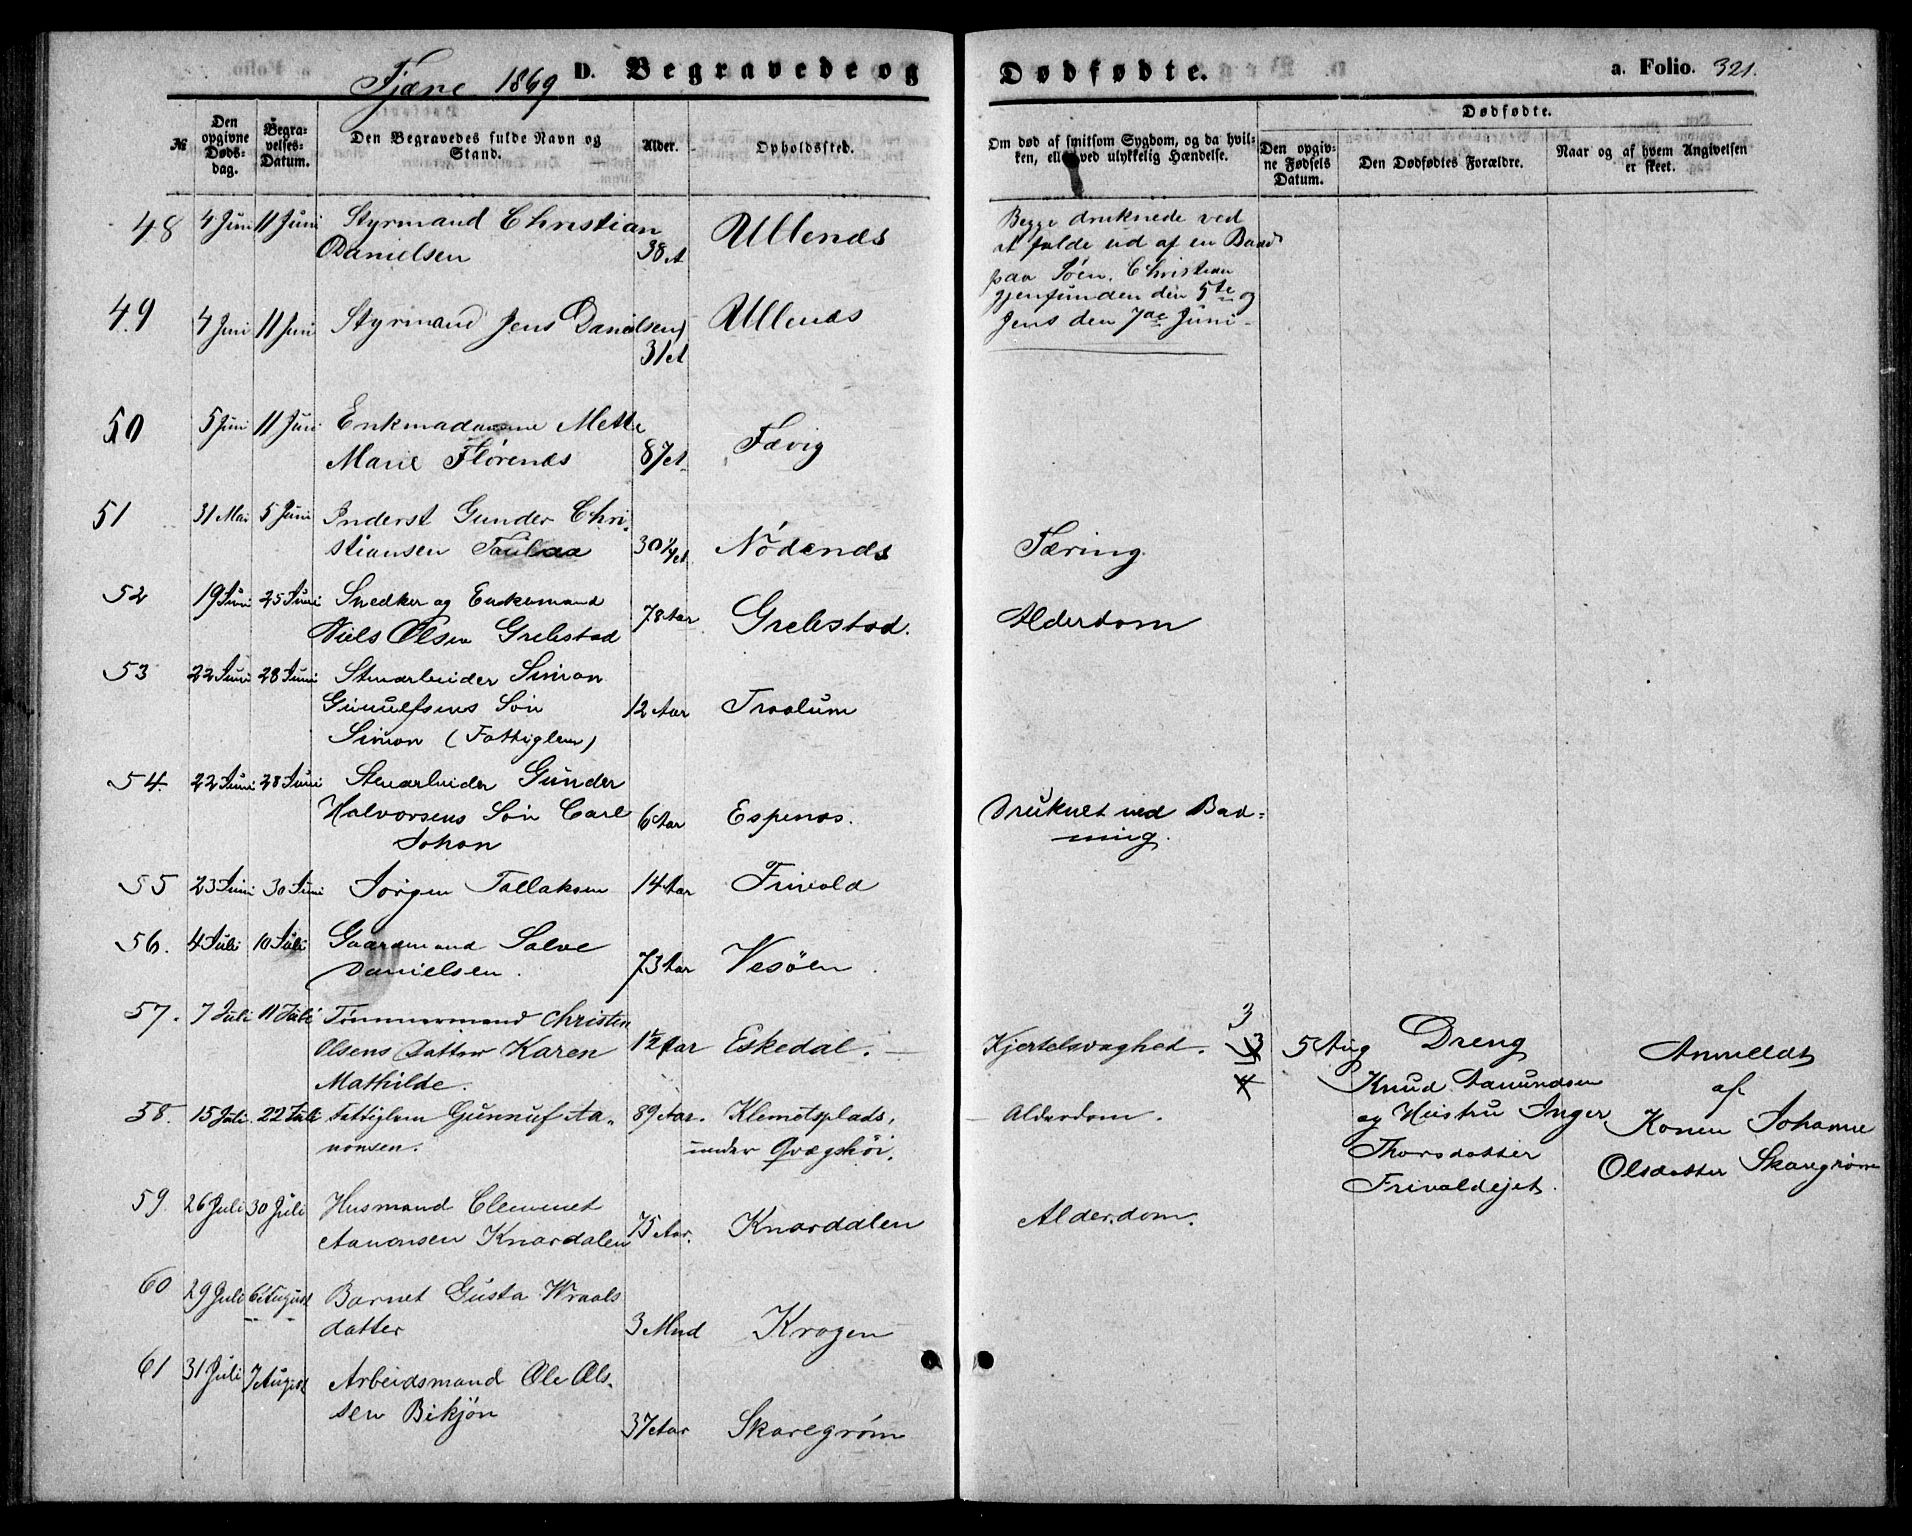 Fjære 1869 D. Begravede og
Dødfødte. a. Folio. 321.
№
Den opgivne Døds-dag.
Begra-velses-Datum.
Den Begravedes fulde Navn og Stand.
Alder.
Opholdssted.
Om død af smitsom Sygdom, og da hvil-
ken, eller ved ulykkelig Hændelse.
Dødfødte.
Den opgiv-ne Fødsels Datum.
Den Dødfødtes Forældre.
Naar og af hvem Angivelsen er skeet.
48 4 Juni 11 Juni Styrmand Christian
Danielsen 38 A Ullenæs
Begge druknede ved
at falde ud af en Baad
paa Søen. Christian
gjenfunden den 5te og
Jens den 7de Juni
49 4 Juni 11 Juni Styrmand Jens Danielsen
31 A Ullenæs
50 5 Juni 11 Juni Enkmadamme Mette
Marie Florenæs 87 A Fævig
51 31 Mai 5 Juni Inderst Gunder Chri-
stiansen 30 ¼ A. Nødenæs Tæring.
52 19 Juni 25 Juni Snedker og Enkemand
Niels Olsen Grebstad 78 Aar Grebstad. Alderdom
53 22 Juni 28 Juni Stenarbeider Simon
Gunulfsens Søn 12 Aar Traalum
Simon (Fattiglem)
54. 22 Juni 28 Juni Stenarbeider Gunder
Halvorsens Søn Carl 6 Aar Espenæs. Druknet ved Bad-
Johan ning.
55 23 Juni 30 Juni Jørgen Tallaksen 14 Aar Frivold
56. 4 Juli 10 Juli Gaardmand Salve
Danielsen. 73 Aar Vesøen.
57. 7 Juli 11 Juli Tømmermand Christen
Olsens Datter Karen 1½ Aar Eskedal. Kjertelsvaghed.
Mathilde.
3 5 Aug Dreng
Knud Aanundsen
og Hustru Inger
Thorsdatter
Frivoldejet.
Anmeldt
af
Konen Johanne
Olsdatter Skaregrøm
58. 15 Juli. 22 Juli Fattiglem Gunnuf Aa-
nonsen. 89 Aar. Klemetsplads, Alderdom.
under Qvægshøi.
59. 26 Juli 30 Juli Husmand Clemmet
Aanonsen Knardalen 75 Aar. Knardalen Alderdom.
60 29 Juli 6 August Barnet Gusta Wraals
datter 3 Mnd Krogen
61 31 Juli 7 August Arbeidsmand Ole Ols-
sen Bikjøn 37 Aar Skaregrøm